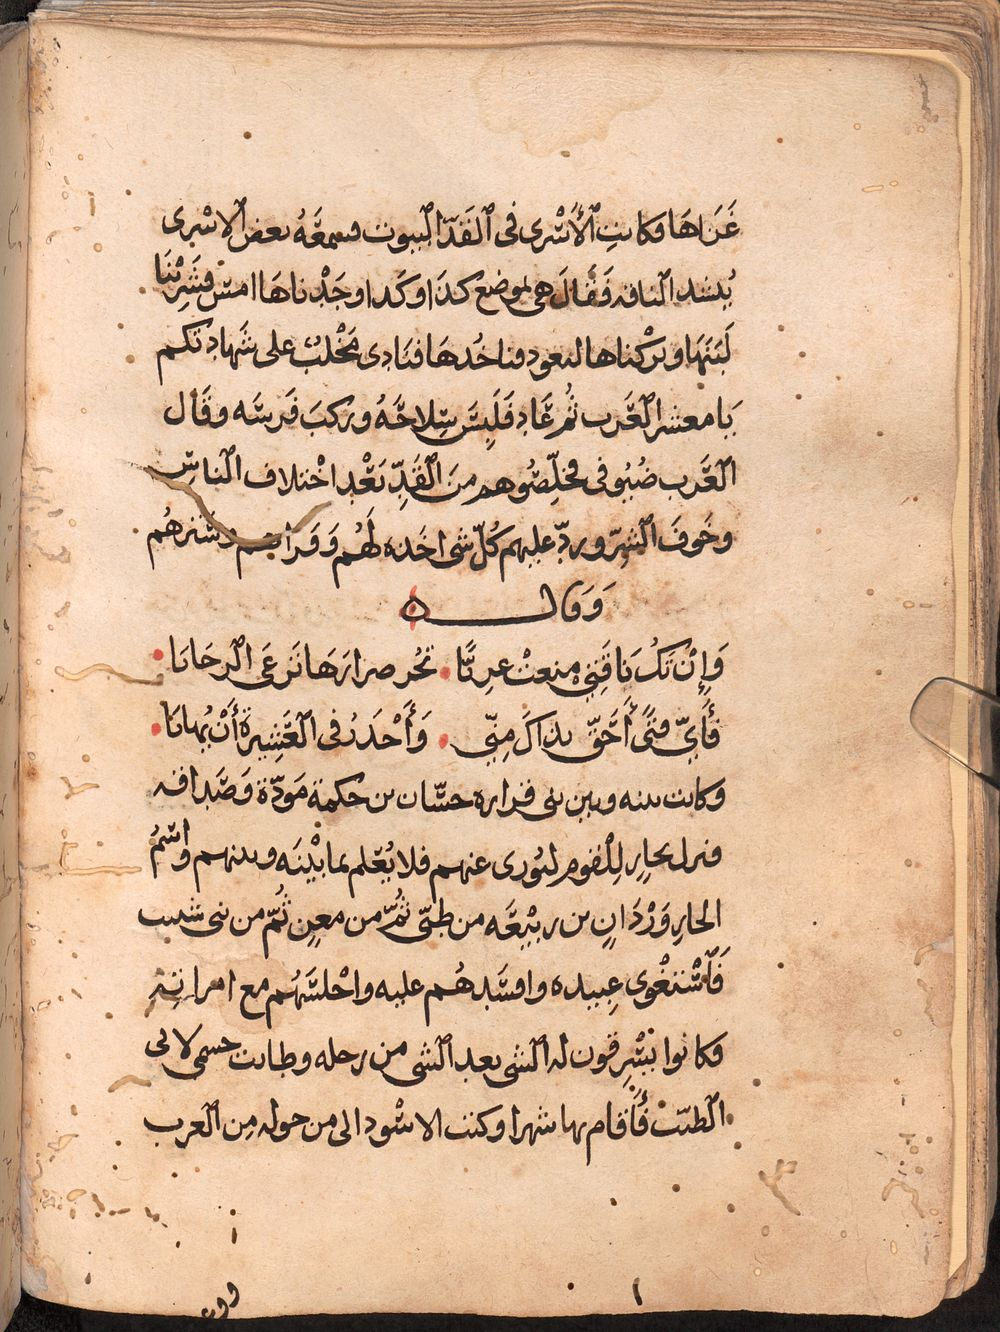 عَرَاهَا وكانتِ الأَسْرى في القَدّ البيوت فسمعَهُ بعض الاسْرى
يُنشد الناقه فَقَالَ هي بموضع كَذَا وكَذا وجَدْناهَا امس فشَرِبْنَا
لَبَنَهَا وتركْناها لنعود فناخُذهَا فنَادى مُخْلب على شَهادتكم
يَا معشر العَرب ثُم عَاد فَلَبِسَ سِلاحَهُ وركبَ فَرسَه وقَال
العَرب في مخلِّصُوهم منَ القَدِّ بَعْد اخْتلاف الناسِ
وخَوفَ الشرّ وردّ عليهم كُلّ شى اخَذه لَهُم وَقَراهم وسَيرهُم
وَقَال
وَإِنْ تَكُ نَاقَتِي منعتْ غِرناً تجُر صرارَهَا تَرعَى الرحَابَا
فَأَيّ فَتًى أَحَقّ بذاكَ مِنِّي وَأَجْدَرُ في العَشِيرَة أَنْ يُهابَا
وكانت بينه وبين بنى فزاره حسّان بن حكمة مَودّة وَصَدَاقه
فنزل بجارِ لِلقوم ليُورى عنهم فلا يُعْلم بما بيْنَه وبينهم واسْمُ
الجارِ وَرْدَانِ بن رَبيْعَه من طَيّ ثُمّ من معنٍ ثُمّ من بنى شبيب
فَاسْتغْوى عِبيده وافسَدهُم عليه واجْلسَهُم مع امراتِهِ
فكانوا يَسْرِقون له الشى بعد الشى من رحله وطابت لابى
الطيّب فَأَقَام بها شهرا وكتب الاسْود الى من حوله مِن العرب